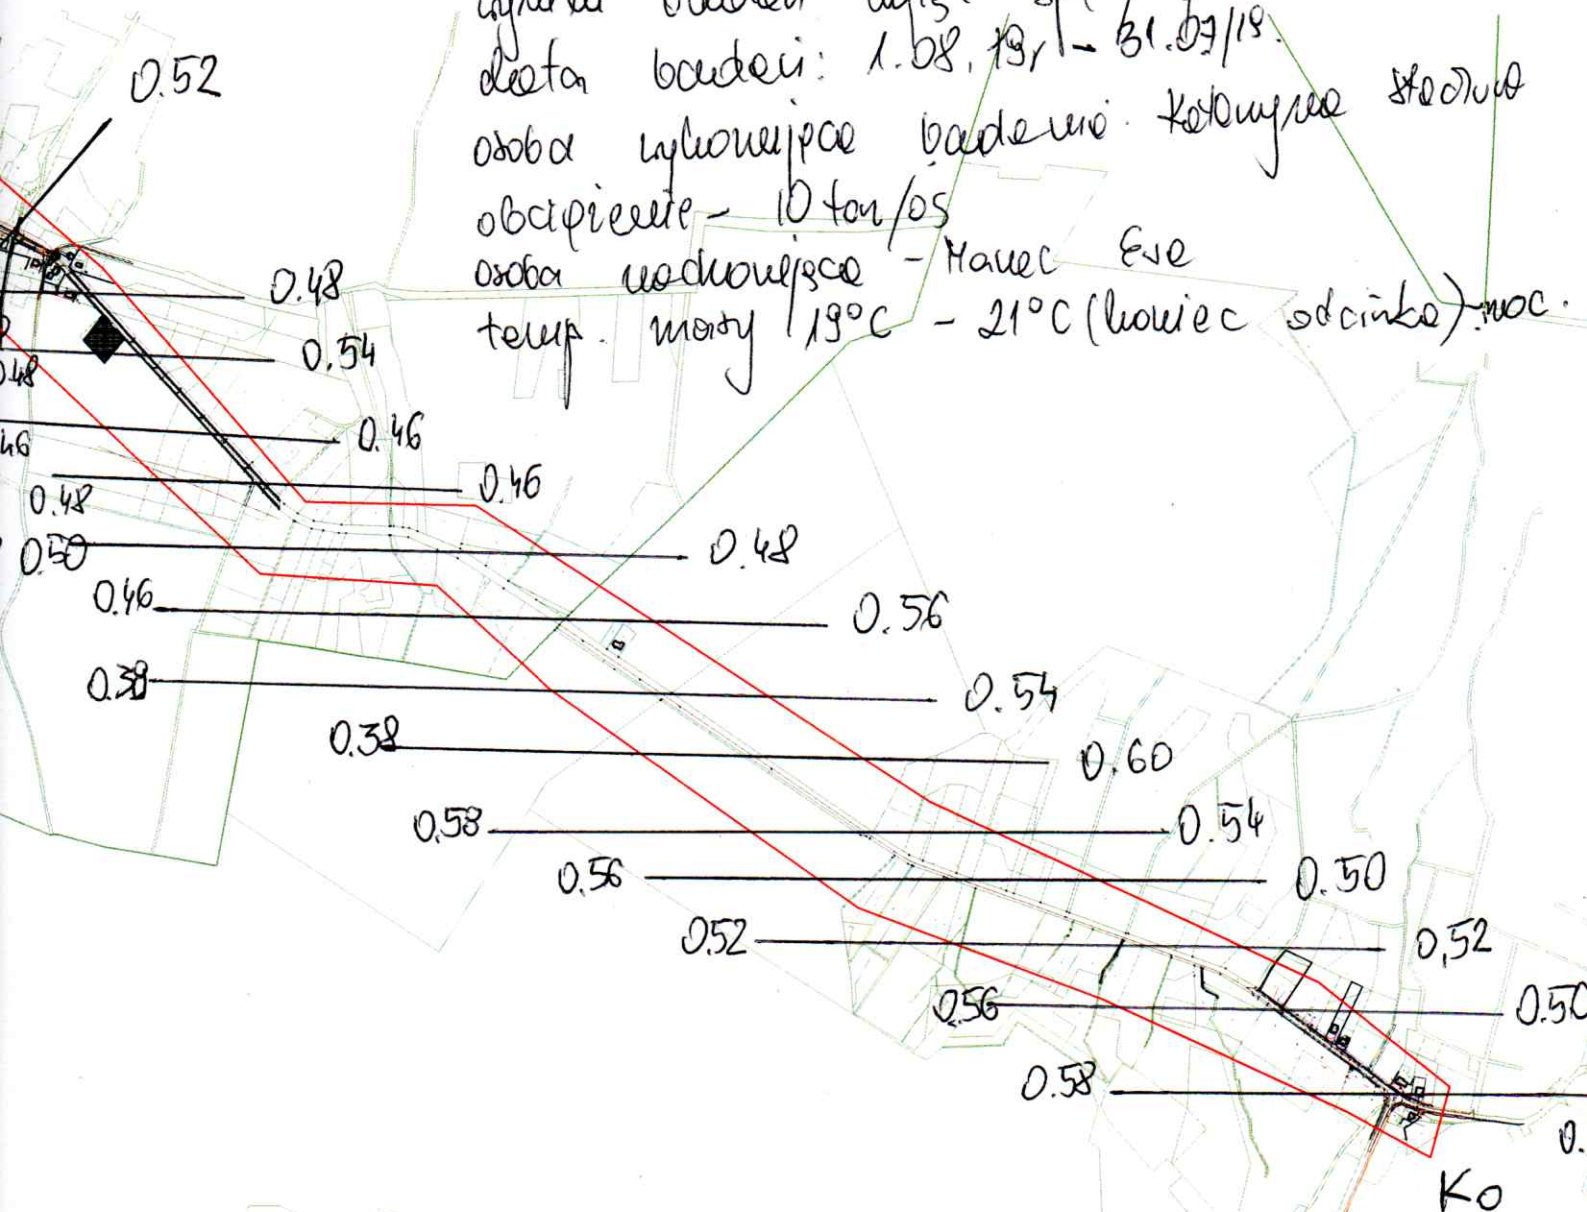 data badań: 1.08.19r - 31.07/19.
osoba wykonująca badania Katarzyna
obciążenie - 10 ton/oś
osoba nadzorująca - Ewa
temp. masy 19°C - 21°C (koniec odcinka) - noc.
0.52
0.48
0.54
0.48
0.46
46
0.46
0.48
0.50
0.48
0.46
0.56
0.38
0.54
0.38
0.60
0,58
0.54
0.56
0.50
0.52
0,52
0.56
0.50
0.58
0.
Ko